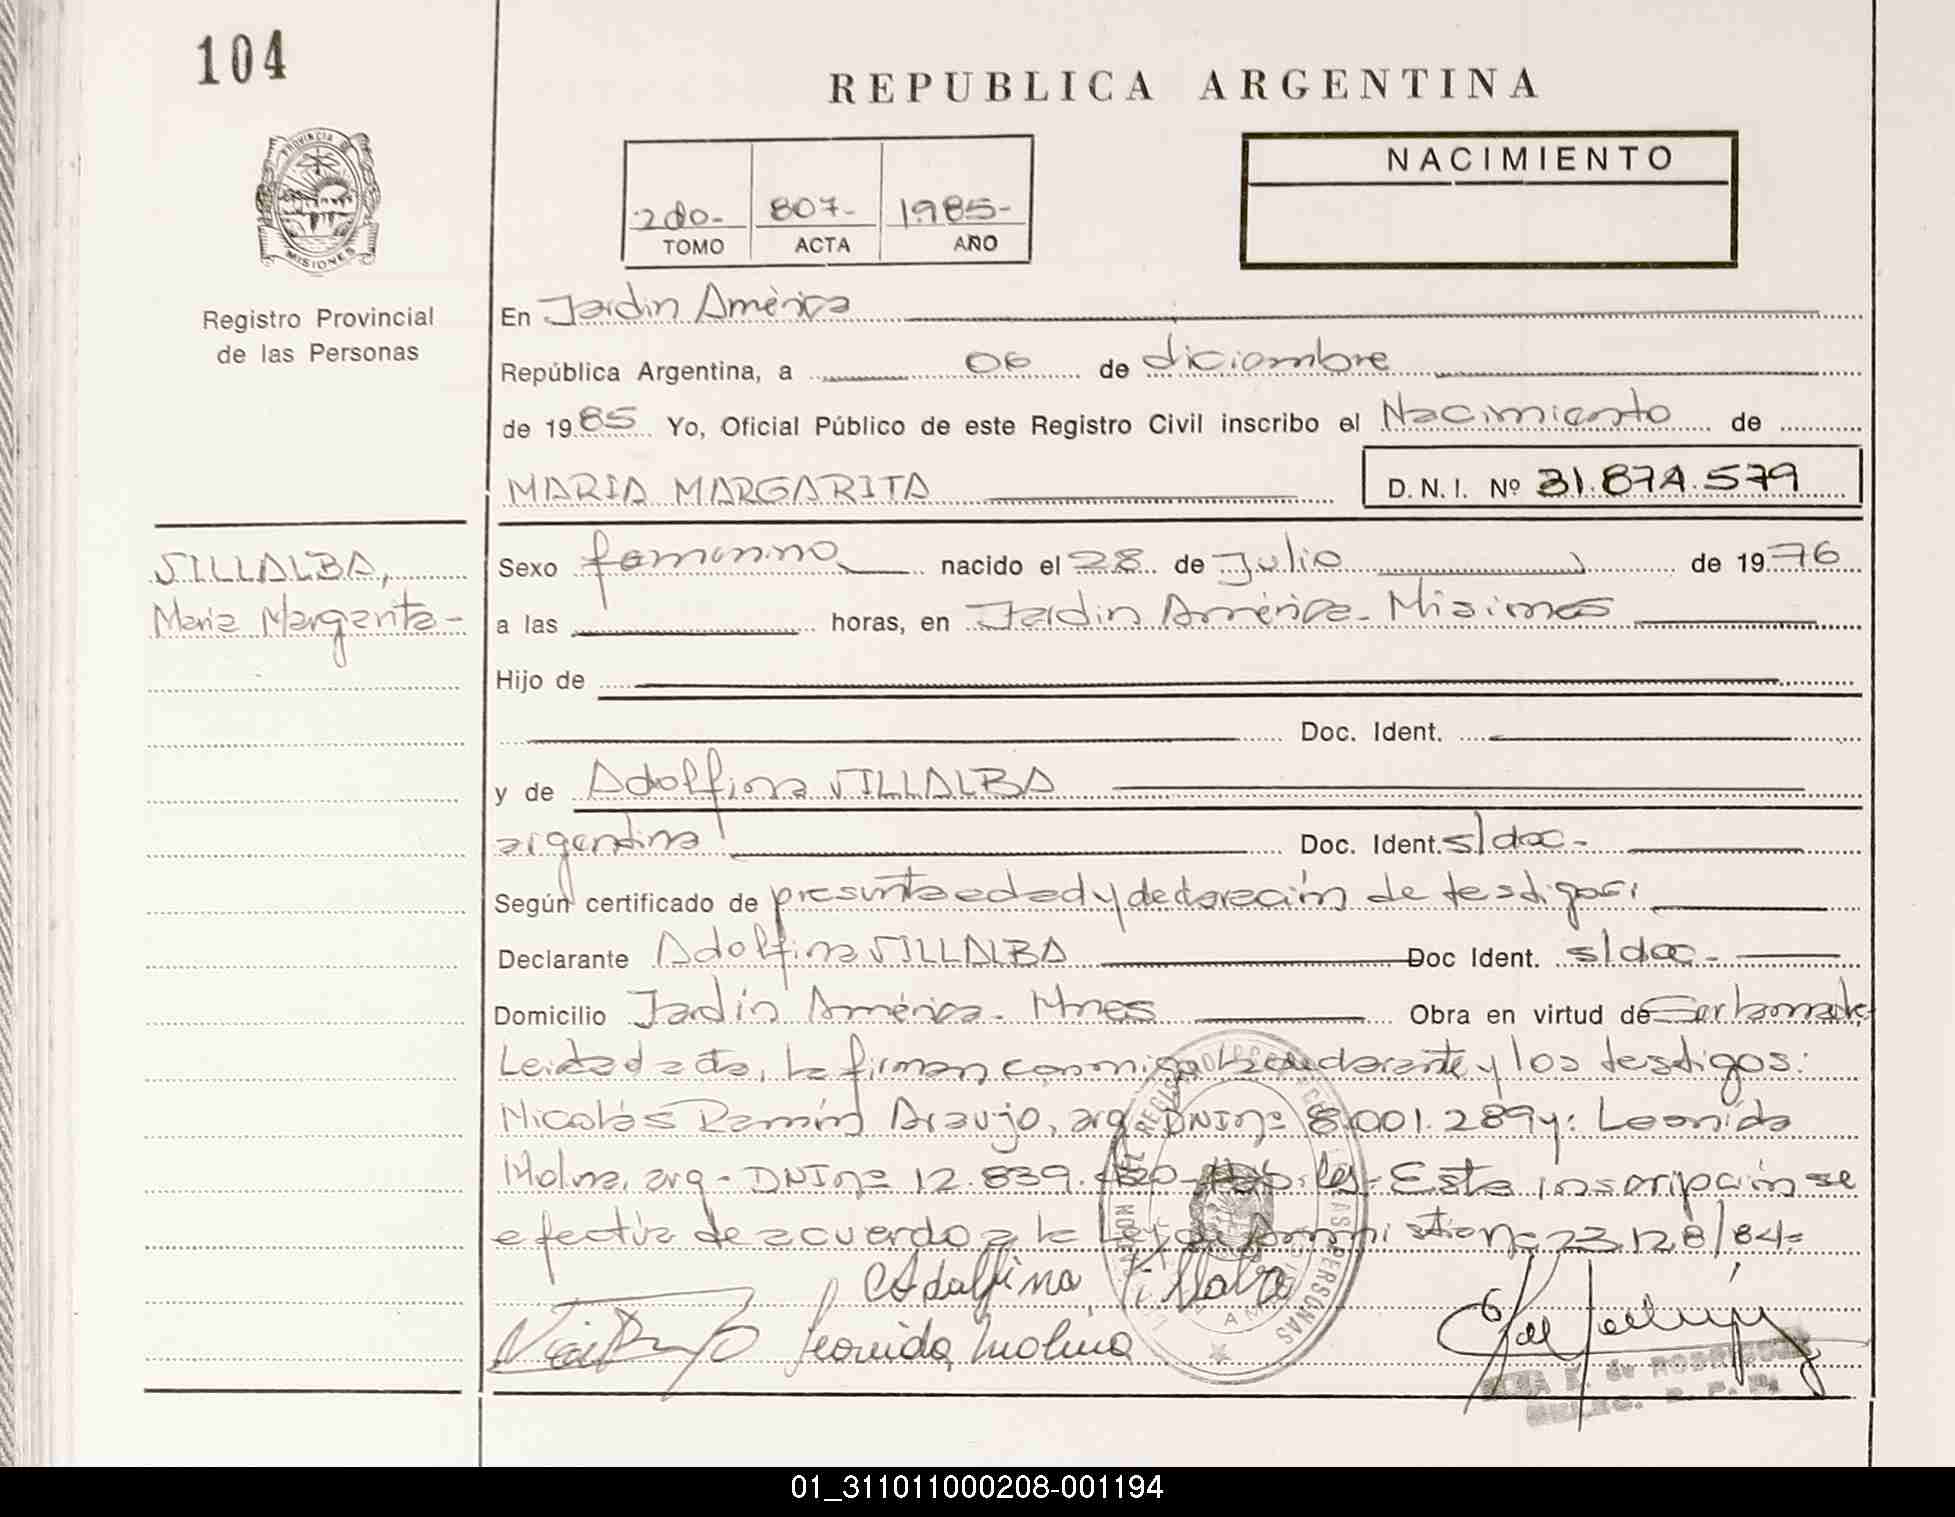 104
REPUBLICA ARGENTINA
PROVINCIA DE
MISIONES
Registro Provincial
de las Personas
2do- 807- 1985-
TOMO ACTA AÑO
NACIMIENTO
En Jardín América
República Argentina, a 06 de diciembre
de 1985 Yo, Oficial Público de este Registro Civil inscribo el Nacimiento de
MARIA MARGARITA D.N.I. Nº 31.874.579
VILLALBA,
Maria Margarita-
Sexo femenino nacido el 28 de Julio de 1976
a las horas, en Jardín América- Misiones
Hijo de
Doc. Ident.
y de Adolfina VILLALBA
argentina Doc. Ident. s/doc-
Según certificado de presunta edad y declaración de testigos;
Declarante Adolfina VILLALBA Doc Ident. s/doc-
Domicilio Jardín América- Mnes Obra en virtud de
Leída el acta, la firman conmigo la declarante y los testigos:
Nicolás Ramón Araujo, arg. DNI nº 8.001.289 y: Leonida
Molina, arg- DNI nº 12.839. Esta inscripción se
efectúa de acuerdo a la Ley de Amnistía nº 23.128/84=
Adolfina Villalba
Leonida Molina
de RODRIGUEZ
01_311011000208-001194